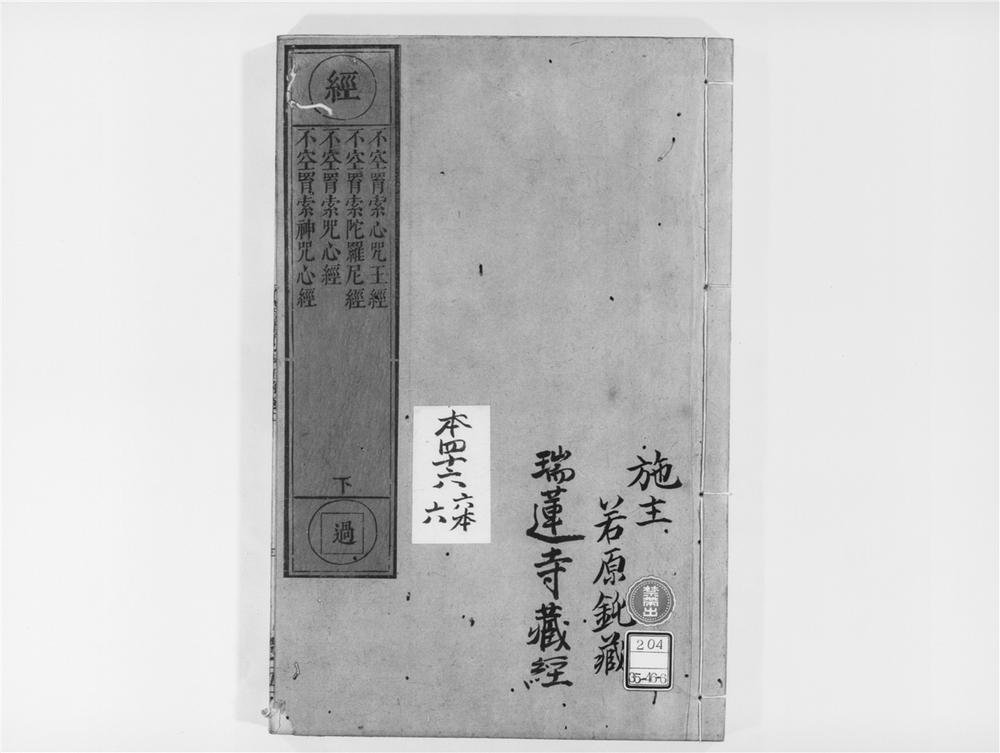 經
不空罥索心咒王經
不空罥索陀羅尼經
不空罥索咒心經
不空罥索神咒心經
下
過
本四十六
六本
六
施主
若原鈍藏
瑞蓮寺藏經
禁帶出
204
35-46-6